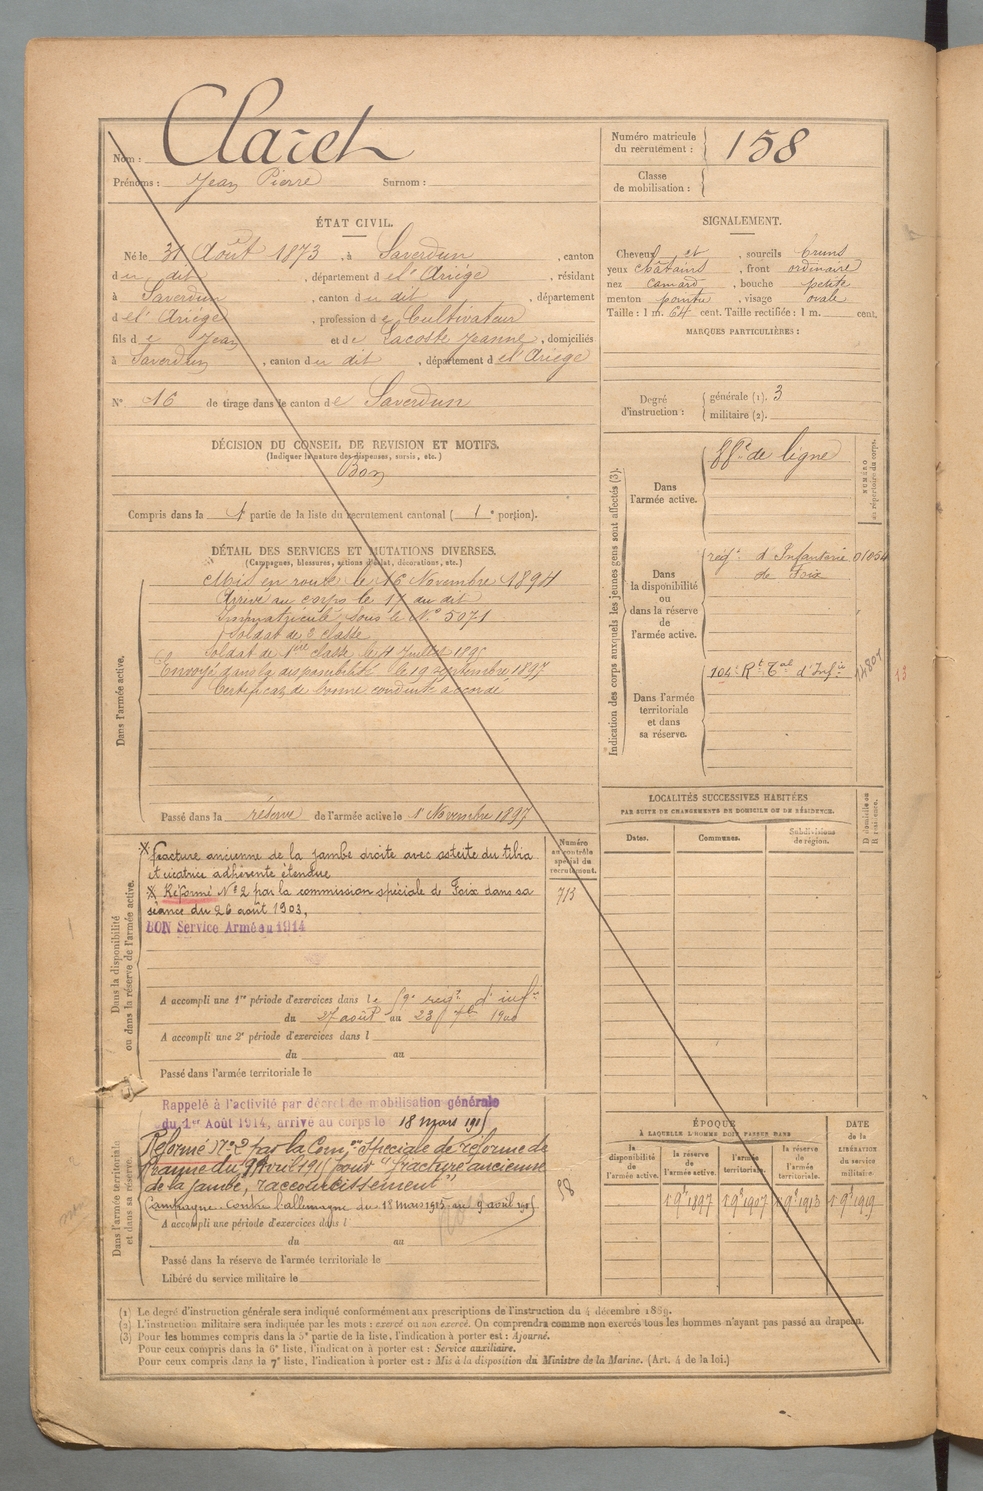 Nom : Claret
Prénoms : Jean Pierre Surnom :
Numéro matricule
du recrutement : 158
Classe
de mobilisation :
ÉTAT CIVIL.
Né le 31 Août 1873, à Saverdun, canton
du dit, département de l'Ariège, résidant
à Saverdun, canton du dit, département
de l'Ariège, profession de Cultivateur
fils de Jean et de Lacoste Jeanne, domiciliés
à Saverdun, canton du dit, département de l'Ariège
N° 16 de tirage dans le canton de Saverdun
DÉCISION DU CONSEIL DE REVISION ET MOTIFS.
(Indiquer la nature des dispenses, sursis, etc.)
Bon
Compris dans la 1e partie de la liste du recrutement cantonal ( 1e portion).
DÉTAIL DES SERVICES ET MUTATIONS DIVERSES.
(Campagnes, blessures, actions d'éclat, décorations, etc.)
Dans l'armée active.
Mis en route le 16 Novembre 1894
Arrivé au corps le 17 du dit
Immatriculé sous le N° 5071
Soldat de 2 classe
Soldat de 1ère classe le 4 Juillet
Envoyé dans la disponibilité le 19 septembre 1897
Certificat de bonne conduite accordé
Passé dans la réserve de l'armée active le 1 Novembre 1897
Dans la disponibilité
ou dans la réserve de l'armée active.
Numéro
au contrôle
spécial du
recrutement.
713
Fracture ancienne de la jambe droite avec ostéite du tibia
et cicatrice adhérente étendue
Réformé N° 2 par la commission spéciale de Foix dans sa
séance du 26 août 1903,
BON Service Armé au 1914
A accompli une 1re période d'exercices dans le 59e regt d'infie
du 27 août au 23 7bre 1900
A accompli une 2e période d'exercices dans l
du au
Passé dans l'armée territoriale le
Dans l'armée territoriale
et dans sa réserve.
Rappelé à l'activité par décret de mobilisation générale
du 1er Août 1914, arrivé au corps le 18 mars 1915
Réformé N° 2 par la Com.on Spéciale de réforme de
du 9 Avril 1915 pour "fracture ancienne
de la jambe, raccourcissement"
Campagne contre l'allemagne du 18 mars 1915 au 9 avril 1915
A accompli une période d'exercices dans l
du au
Passé dans la réserve de l'armée territoriale le
Libéré du service militaire le
SIGNALEMENT.
Cheveux et, sourcils bruns
yeux châtains, front ordinaire
nez camard, bouche petite
menton pointu, visage ovale
Taille : 1 m. 64 cent. Taille rectifiée : 1 m. cent.
MARQUES PARTICULIÈRES :
Degré
d'instruction :
générale (1). 3
militaire (2).
Indication des corps auxquels les jeunes gens sont affectés (3).
NUMÉRO
au répertoire du corps.
Dans
l'armée active.
de ligne
Dans
la disponibilité
ou
dans la réserve
de
l'armée active.
regt d'Infanterie
de Foix
Dans l'armée
territoriale
et dans
sa réserve.
104e Rt Tal d'Infie
13
LOCALITÉS SUCCESSIVES HABITÉES
PAR SUITE DE CHANGEMENTS DE DOMICILE OU DE RÉSIDENCE.
D domicile ou
R résidence.
Dates. Communes. Subdivisions
de région.
ÉPOQUE
À LAQUELLE L'HOMME DOIT PASSER DANS
DATE
de la
LIBÉRATION
du service
militaire.
la
disponibilité
de
l'armée active.
la réserve
de
l'armée active.
l'armée
territoriale.
la réserve
de
l'armée
territoriale.
1 9bre 1897 1 9bre 1907 1 9bre 1913 1 9bre 1919
(1) Le degré d'instruction générale sera indiqué conformément aux prescriptions de l'instruction du 4 décembre 1889.
(2) L'instruction militaire sera indiquée par les mots : exercé ou non exercé. On comprendra comme non exercés tous les hommes n'ayant pas passé au drapeau.
(3) Pour les hommes compris dans la 5e partie de la liste, l'indication à porter est : Ajourné.
Pour ceux compris dans la 6e liste, l'indication à porter est : Service auxiliaire.
Pour ceux compris dans la 7e liste, l'indication à porter est : Mis à la disposition du Ministre de la Marine. (Art. 4 de la loi.)